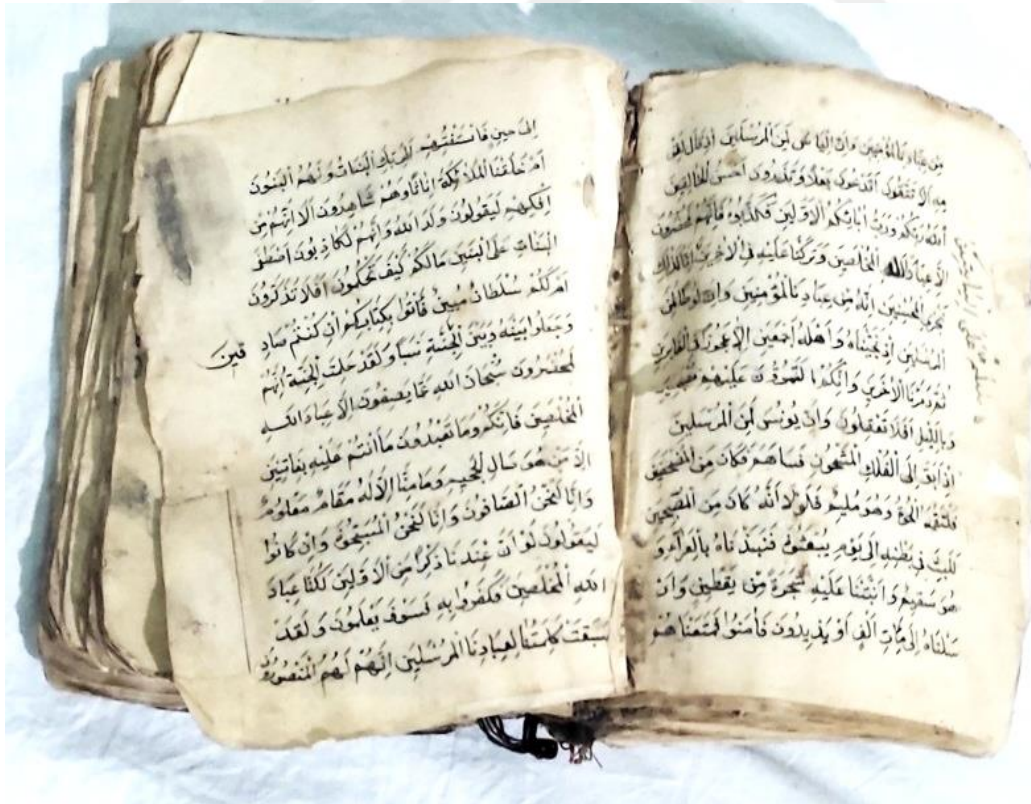 مِنْ عِبَادِنَا الْمُؤْمِنِينَ وَاِنَّ اِلْيَاسَ لَمِنَ الْمُرْسَلِينَ اِذْ قَالَ لِقَوْ
مِهِ اَلَا تَتَّقُونَ اَتَدْعُونَ بَعْلًا وَتَذَرُونَ اَحْسَنَ الْخَالِقِينَ
اَللهَ رَبَّكُمْ وَرَبَّ اٰبَائِكُمُ الْاَوَّلِينَ فَكَذَّبُوهُ فَاِنَّهُمْ لَمُحْضَرُونَ
اِلَّا عِبَادَ اللهِ الْمُخْلَصِينَ وَتَرَكْنَا عَلَيْهِ فِي الْاٰخِرِينَ اِنَّا كَذٰلِكَ
نَجْزِي الْمُحْسِنِينَ اِنَّهُ مِنْ عِبَادِنَا الْمُؤْمِنِينَ وَاِنَّ لُوطًا لَمِنَ
الْمُرْسَلِينَ اِذْ نَجَّيْنَاهُ وَاَهْلَهُ اَجْمَعِينَ اِلَّا عَجُوزًا فِي الْغَابِرِينَ
ثُمَّ دَمَّرْنَا الْاٰخَرِينَ وَاِنَّكُمْ لَتَمُرُّونَ عَلَيْهِمْ مُصْبِحِينَ
وَبِاللَّيْلِ اَفَلَا تَعْقِلُونَ وَاِنَّ يُونُسَ لَمِنَ الْمُرْسَلِينَ
اِذْ اَبَقَ اِلَى الْفُلْكِ الْمَشْحُونِ فَسَاهَمَ فَكَانَ مِنَ الْمُدْحَضِينَ
فَالْتَقَمَهُ الْحُوتُ وَهُوَ مُلِيمٌ فَلَوْلَا اَنَّهُ كَانَ مِنَ الْمُسَبِّحِينَ
لَلَبِثَ فِي بَطْنِهِ اِلَى يَوْمِ يُبْعَثُونَ فَنَبَذْنَاهُ بِالْعَرَاءِ وَ
هُوَ سَقِيمٌ وَاَنْبَتْنَا عَلَيْهِ شَجَرَةً مِنْ يَقْطِينٍ وَاَرْ
سَلْنَاهُ اِلَى مِائَةِ اَلْفٍ اَوْ يَزِيدُونَ فَاٰمَنُوا فَمَتَّعْنَاهُمْ
اِلَى حِينٍ فَاسْتَفْتِهِمْ اَلِرَبِّكَ الْبَنَاتُ وَلَهُمُ الْبَنُونَ
اَمْ خَلَقْنَا الْمَلَائِكَةَ اِنَاثًا وَهُمْ شَاهِدُونَ اَلَا اِنَّهُمْ مِنْ
اِفْكِهِمْ لَيَقُولُونَ وَلَدَ اللهُ وَاِنَّهُمْ لَكَاذِبُونَ اَصْطَفَى
الْبَنَاتِ عَلَى الْبَنِينَ مَالَكُمْ كَيْفَ تَحْكُمُونَ اَفَلَا تَذَكَّرُونَ
اَمْ لَكُمْ سُلْطَانٌ مُبِينٌ فَأْتُوا بِكِتَابِكُمْ اِنْ كُنْتُمْ صَادِ
قِينَ
وَجَعَلُوا بَيْنَهُ وَبَيْنَ الْجِنَّةِ نَسَبًا وَلَقَدْ عَلِمَتِ الْجِنَّةُ اِنَّهُمْ
لَمُحْضَرُونَ سُبْحَانَ اللهِ عَمَّا يَصِفُونَ اِلَّا عِبَادَ اللهِ
الْمُخْلَصِينَ فَاِنَّكُمْ وَمَا تَعْبُدُونَ مَا اَنْتُمْ عَلَيْهِ بِفَاتِنِينَ
اِلَّا مَنْ هُوَ صَالِ الْجَحِيمِ وَمَا مِنَّا اِلَّا لَهُ مَقَامٌ مَعْلُومٌ
وَاِنَّا لَنَحْنُ الصَّافُّونَ وَاِنَّا لَنَحْنُ الْمُسَبِّحُونَ وَاِنْ كَانُوا
لَيَقُولُونَ لَوْ اَنَّ عِنْدَنَا ذِكْرًا مِنَ الْاَوَّلِينَ لَكُنَّا عِبَادَ
اللهِ الْمُخْلَصِينَ فَكَفَرُوا بِهِ فَسَوْفَ يَعْلَمُونَ وَلَقَدْ
سَبَقَتْ كَلِمَتُنَا لِعِبَادِنَا الْمُرْسَلِينَ اِنَّهُمْ لَهُمُ الْمَنْصُورُونَ